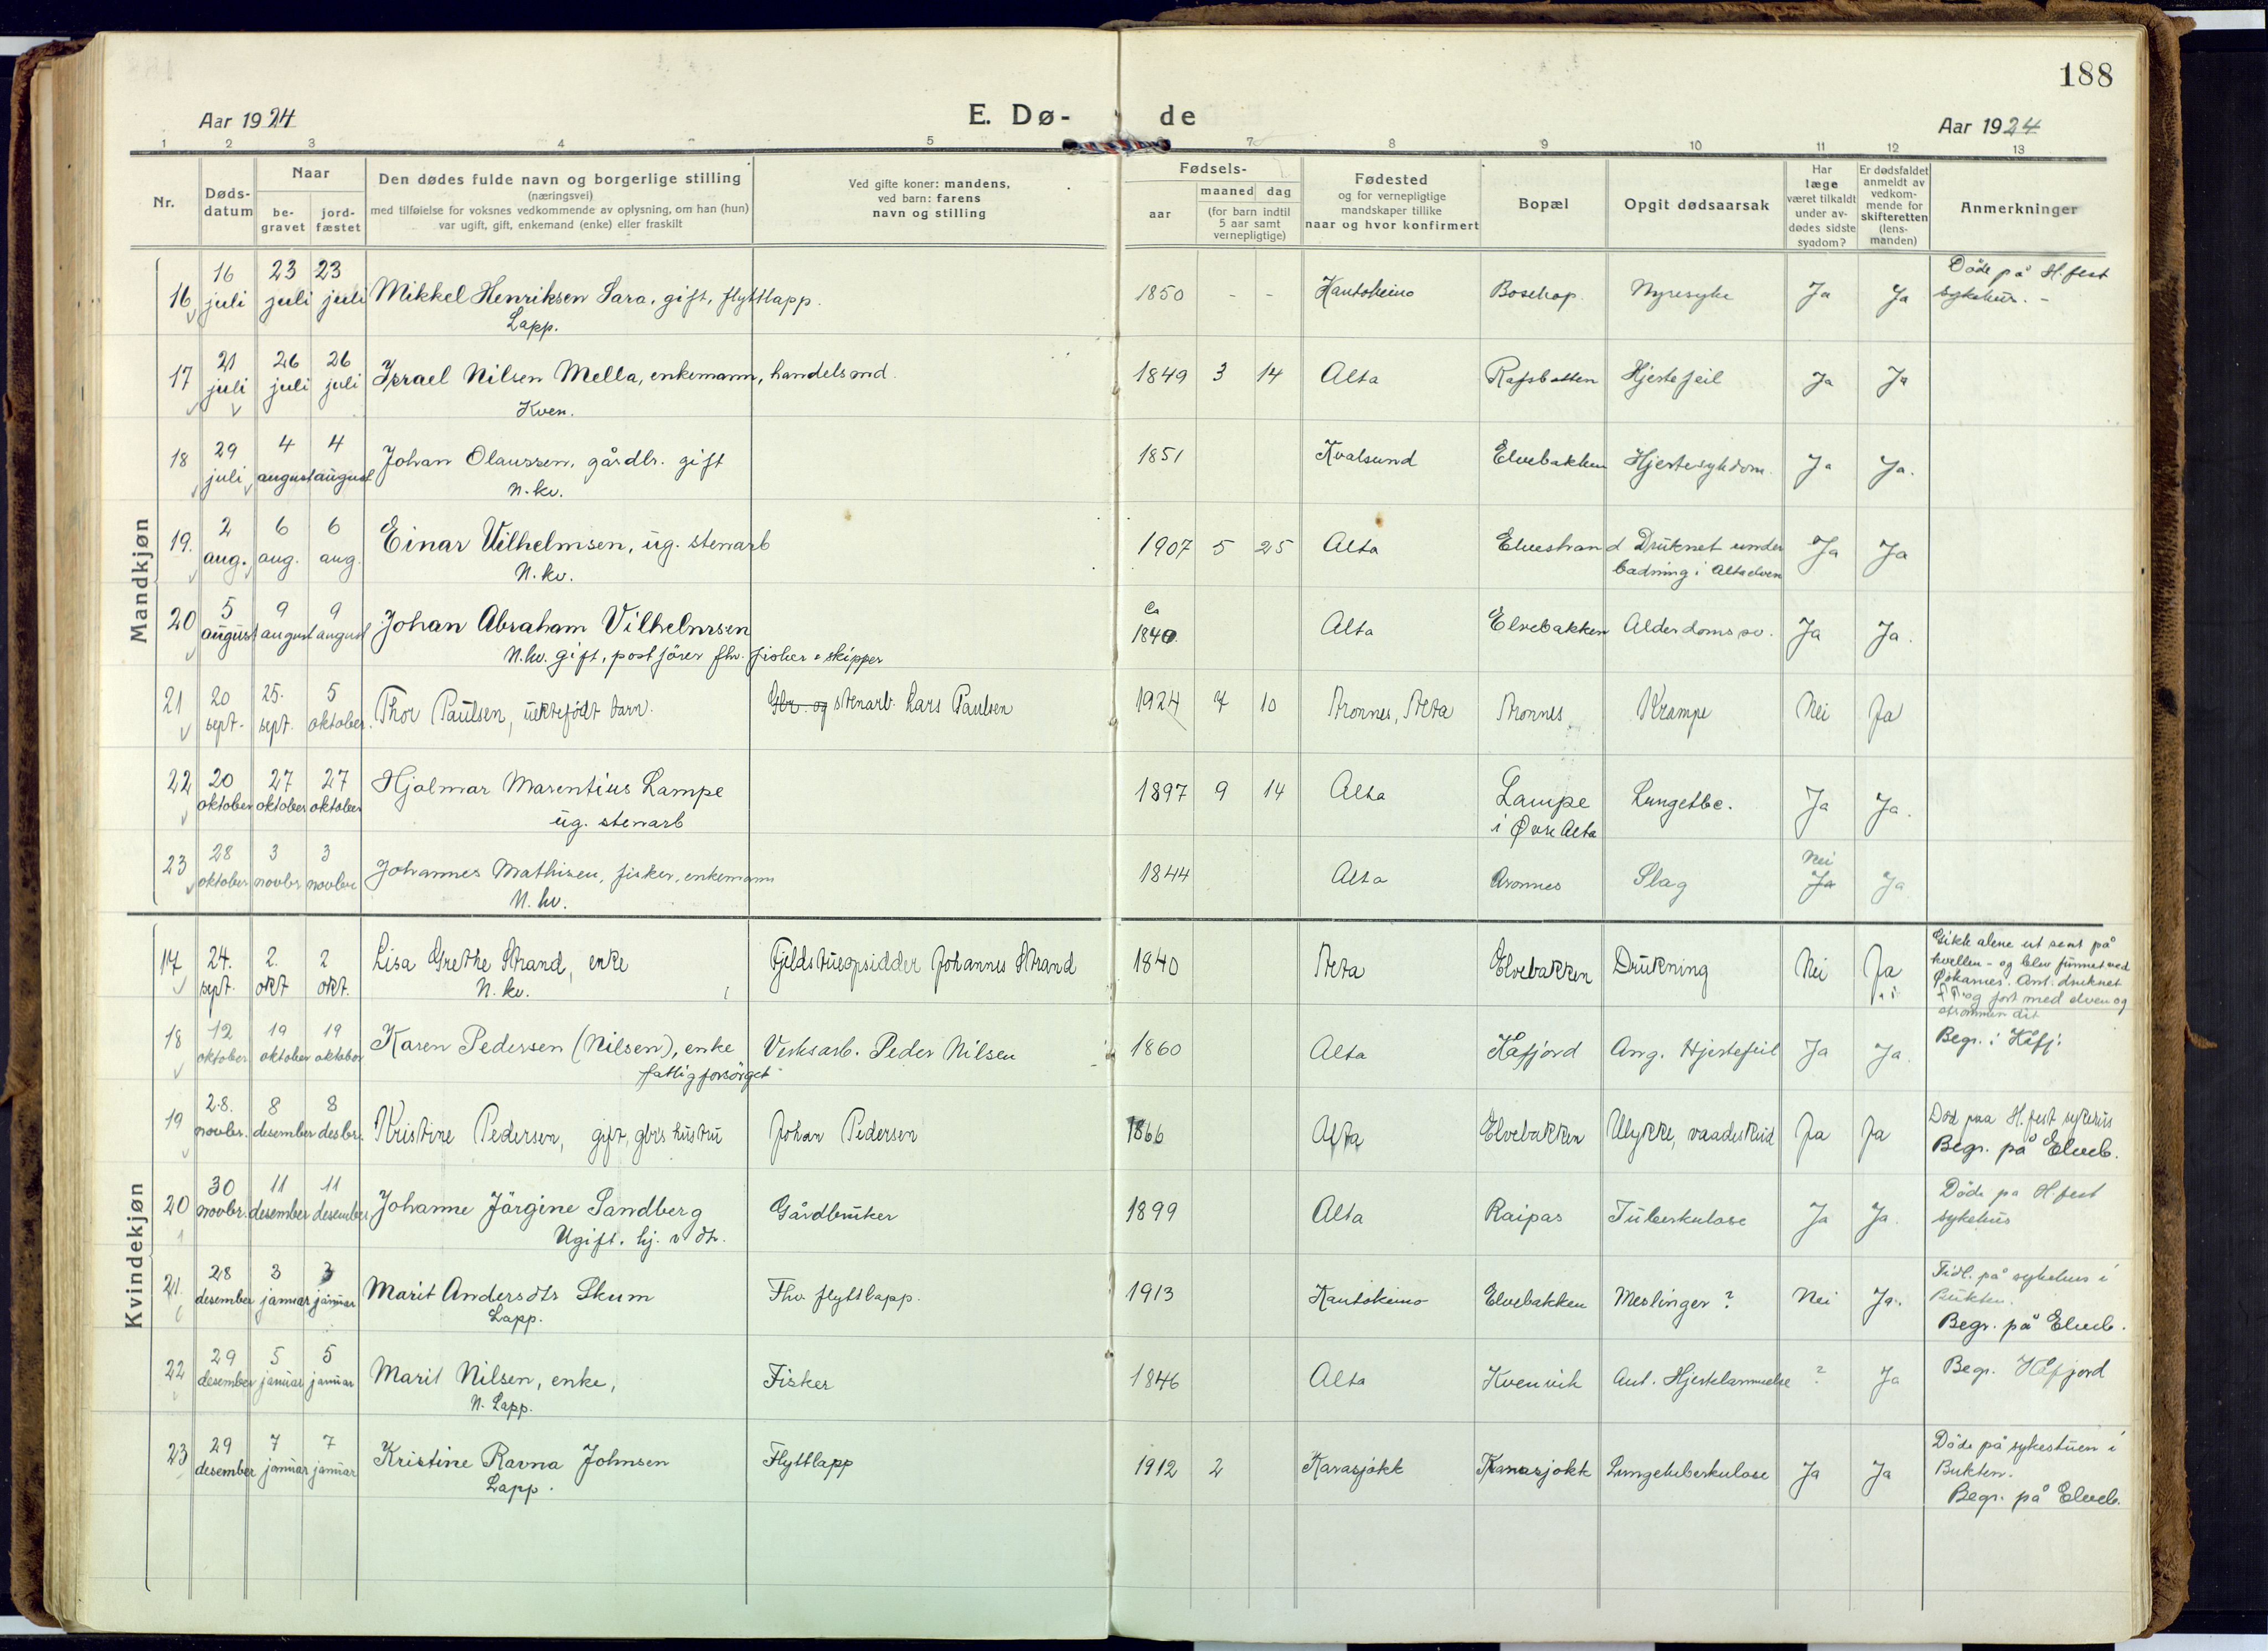 188
Aar 1924
E. Dø-
de
Aar 1924
1 2 3 4 5 7 8 9 10 11 12 13
Nr.
Døds-datum
Naar
be-gravet
jord-fæstet
Den dødes fulde navn og borgerlige stilling
(næringsvei)
med tilføielse for voksnes vedkommende av oplysning, om han (hun)
var ugift, gift, enkemand (enke) eller fraskilt
Ved gifte koner: mandens,
ved barn: farens
navn og stilling
Fødsels-
aar
maaned dag
(for barn indtil
5 aar samt
vernepligtige)
Fødested
og for vernepligtige
mandskaper tillike
naar og hvor konfirmert
Bopæl
Opgit dødsaarsak
Har
læge
været tilkaldt
under av-
dødes sidste
sygdom?
Er dødsfaldet
anmeldt av
vedkom-
mende for
skifteretten
(lens-
manden)
Anmerkninger
Mandkjøn
16 16 juli 23 juli 23 juli Mikkel Henriksen Sara, gift, flyttlapp. 1850 - - Kautokeino Bosekop. Nyresyke Ja Ja Döde på H.fest
Lapp. sykehus. -
17 21 juli 26 juli 26 juli Israel Nilsen Mella, enkemann, handelsmd. 1849 3 14 Alta Rafsbotten Hjertefeil Ja Ja
Kven.
18 29 juli 4 august 4 august Johan Olaussen, gårdbr. gift 1851 Kvalsund Elvebakken Hjertesykdom. Ja Ja.
N.kv.
19. 2 aug. 6 aug. 6 aug. Einar Vilhelmsen, ug. stenarb 1907 5 25 Alta Elvestrand Druknet under Ja Ja
N.kv. badning i Altaelven
20 5 august 9 august 9 august Johan Abraham Vilhelmsen Ca 1840 Alta Elvebakken Alderdomssv. Ja Ja.
N.kv. gift, postförer fhv. fisker & skipper
21 20 sept. 25. sept. 5 oktober. Thor Paulsen, uektefödt barn. Gbr. og stenarb. Lars Paulsen 1924 7 10 Aronnes, Alta Aronnes Krampe Nei Ja
22 20 oktober 27 oktober 27 oktober Hjalmar Marentius Lampe 1897 9 14 Alta Lampe Lungetbc. Ja Ja.
ug. stenarb i Øvre Alta
23 28 oktober 3 novbr 3 novbr Johannes Mathisen, fisker, enkemann 1844 Alta Aronnes Slag Nei Ja Ja
N.kv.
Kvindekjøn
17 24. sept. 2. okt 2 okt. Lisa Grethe Strand, enke Fjeldstueopsidder Johannes Strand 1840 Alta Elvebakken Drukning Nei Ja Gikk alene ut sent på
N.kv. kvellen - og blev funnet ved
Ant. druknet
og fört med elven og
strömmen dit
18 12 oktober 19 oktober 19 oktober Karen Pedersen (Nilsen), enke Verksarb. Peder Nilsen 1860 Alta Kåfjord Ang. Hjertefeil Ja Ja. Begr. i Kåfj.
fattigforsörget
19 28. novbr. 8 desember 8 desbr. Kristine Pedersen, gift, gbrs hustru Johan Pedersen 1866 Alta Elvebakken Ulykke, vaadeskud Ja Ja Död paa H.fest sykehus
Begr. på Elveb.
20 30 novbr. 11 desember 11 desember Johanne Jörgine Sandberg Gårdbruker 1899 Alta Raipas Tuberkulose Ja Ja. Döde på H.fest
Ugift. hj.v. dtr. sykehus
21. 28 desember 3 januar 3 januar Marit Andersdtr Skum Fhv. flyttlapp. 1913 Kautokeino Elvebakken Meslinger? Nei Ja. Tidl. på sykehus i
Lapp. Bukten.
Begr. på Elveb.
22 29 desember 5 januar 5 januar Marit Nilsen, enke, Fisker 1846 Alta Kvenvik Ant. Hjertelammelse ? Ja Begr. Kåfjord
N. Lapp.
23 29 desember 7 januar 7 januar Kristine Ravna Johnsen Flyttlapp 1912 2 Karasjokk Karasjokk Lungetuberkulose Ja Ja Döde på sykestuen i
Lapp. Bukten.
Begr. på Elveb.